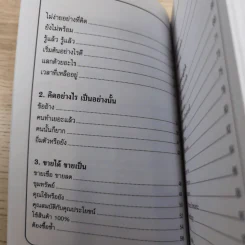 ไม่ง่ายอย่างที่คิด
ยังไม่พร้อม
รู้แล้ว รู้แล้ว
เริ่มต้นอย่างไรดี
แลกด้วยอะไร
เวลาที่เหลืออยู่
2. คิดอย่างไร เป็นอย่างนั้น
ข้ออ้าง
คนทำเยอะแล้ว
คนนั้นก็ยาก
ยืมตัวหรือยัง
3. ขายได้ ขายเป็น
ขายเชื่อ ขายสด
ขุมทรัพย์
คุณใช้หรือยัง
คุณสมบัติกับคุณประโยชน์
ใช้สินค้า 100%
ต้องซื้อซ้ำ